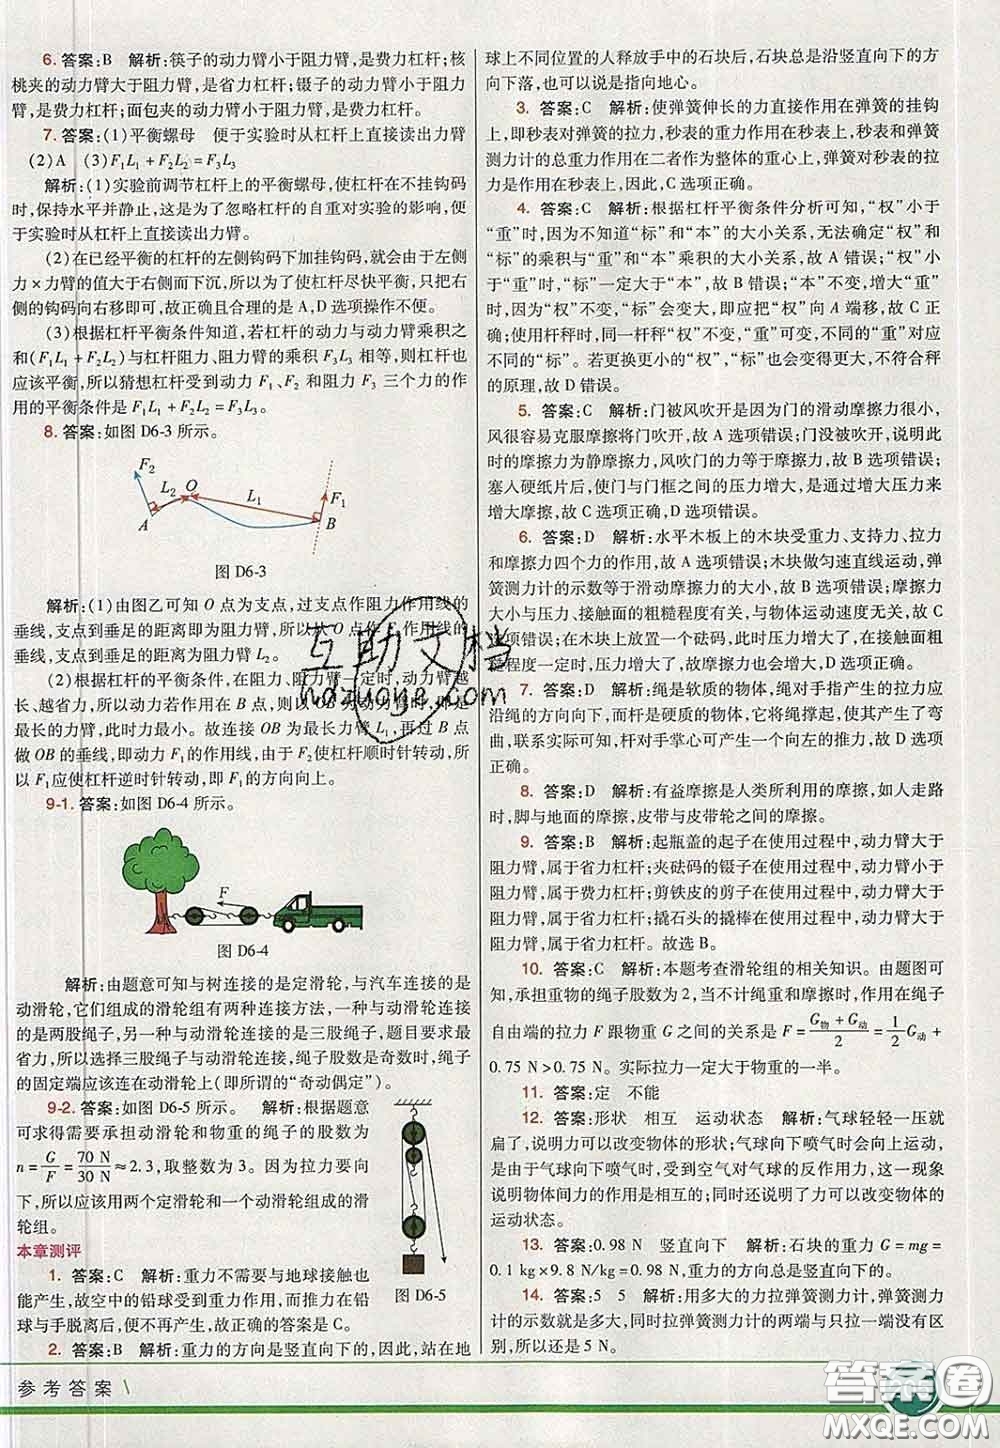 6. 答案:B 解析:筷子的动力臂小于阻力臂,是费力杠杆;核
桃夹的动力臂大于阻力臂,是省力杠杆;镊子的动力臂小于阻力
臂,是费力杠杆;面包夹的动力臂小于阻力臂,是费力杠杆。
7. 答案:(1)平衡螺母 便于实验时从杠杆上直接读出力臂
(2)A (3)F₁L₁+F₂L₂=F₃L₃
解析:(1)实验前调节杠杆上的平衡螺母,使杠杆在不挂钩码
时,保持水平并静止,这是为了忽略杠杆的自重对实验的影响,便
于实验时从杠杆上直接读出力臂。
(2)在已经平衡的杠杆的左侧钩码下加挂钩码,就会由于左侧
力×力臂的值大于右侧而下沉,所以为了使杠杆尽快平衡,只把右
侧的钩码向右移即可,故正确且合理的是A,D选项操作不便。
(3)根据杠杆平衡条件知道,若杠杆的动力与动力臂乘积之
和(F₁L₁+F₂L₂)与杠杆阻力、阻力臂的乘积F₃L₃相等,则杠杆也
应该平衡,所以猜想杠杆受到动力F₁、F₂和阻力F₃三个力的作
用的平衡条件是F₁L₁+F₂L₂=F₃L₃。
8. 答案:如图D6-3所示。
F₂
L₂ O L₁ F₁
A B
图D6-3
解析:(1)由图乙可知O点为支点,过支点作阻力作用线的
垂线,支点到垂足的距离即为阻力臂,所以从O点作F₂作用线的
垂线,支点到垂足的距离为阻力臂L₂。
(2)根据杠杆的平衡条件,在阻力、阻力臂一定时,动力臂越
长、越省力,所以动力若作用在B点,则以OB为动力臂时,是
最长的力臂,此时力最小。故连接OB为最长力臂L₁,再过B点
做OB的垂线,即动力F₁的作用线,由于F₂使杠杆顺时针转动,所
以F₁应使杠杆逆时针转动,即F₁的方向向上。
9-1. 答案:如图D6-4所示。
F
图D6-4
解析:由题意可知与树连接的是定滑轮,与汽车连接的是
动滑轮,它们组成的滑轮组有两种连接方法,一种与动滑轮连接
的是两股绳子,另一种与动滑轮连接的是三股绳子,题目要求最
省力,所以选择三股绳子与动滑轮连接,绳子股数是奇数时,绳子
的固定端应该连在动滑轮上(即所谓的“奇动偶定”)。
9-2. 答案:如图D6-5所示。 解析:根据题意
可求得需要承担动滑轮和物重的绳子的股数为
n=G/F=70 N/30 N≈2.3,取整数为3。因为拉力要向
下,所以应该用两个定滑轮和一个动滑轮组成的滑
轮组。
图D6-5
本章测评
1. 答案:C 解析:重力不需要与地球接触也
能产生,故空中的铅球受到重力作用,而推力在铅
球与手脱离后,便不再产生。故正确的答案是C。
2. 答案:B 解析:重力的方向是竖直向下的,因此,站在地
球上不同位置的人释放手中的石块后,石块总是沿竖直向下的方
向下落,也可以说是指向地心。
3. 答案:C 解析:使弹簧伸长的力直接作用在弹簧的挂钩
上,即秒表对弹簧的拉力,秒表的重力作用在秒表上,秒表和弹簧
测力计的总重力作用在二者作为整体的重心上,弹簧对秒表的拉
力是作用在秒表上,因此,C选项正确。
4. 答案:C 解析:根据杠杆平衡条件分析可知,“权”小于
“重”时,因为不知道“标”和“本”的大小关系,无法确定“权”和
“标”的乘积与“重”和“本”乘积的大小关系,故A错误;“权”小于
“重”时,“标”一定大于“本”,故B错误;“本”不变,增大“重”
时,因为“权”不变,“标”会变大,即应把“权”向A端移,故C正
确;使用杆秤时,同一杆秤“权”不变,“重”可变,不同的“重”对应
不同的“标”。若更换更小的“权”,“标”也会变得更大,不符合秤
的原理,故D错误。
5. 答案:C 解析:门被风吹开是因为门的滑动摩擦力很小,
风很容易克服摩擦将门吹开,故A选项错误;门没被吹开,说明此
时的摩擦力为静摩擦力,风吹门的力等于摩擦力,故B选项错误;
塞入硬纸片后,使门与门框之间的压力增大,是通过增大压力来
增大摩擦,故C选项正确,D选项错误。
6. 答案:D 解析:水平木板上的木块受重力、支持力、拉力
和摩擦力四个力的作用,故A选项错误;木块做匀速直线运动,弹
簧测力计的示数等于滑动摩擦力的大小,故B选项错误;摩擦力
大小与压力、接触面的粗糙程度有关,与物体运动速度无关,故C
选项错误;在木块上放置一个砝码,此时压力增大,当接触面粗
糙程度一定时,压力增大了,故摩擦力也增大,故D选项正确。
7. 答案:D 解析:绳是软质的物体,绳对手指产生的拉力应
沿绳的方向向下,而杆是硬质的物体,它将绳撑起,使其产生了弯
曲,联系实际可知,杆对手掌心可产生一个向左的推力,故D选项
正确。
8. 答案:D 解析:有益摩擦是人类所利用的摩擦,如人走路
时,脚与地面的摩擦,皮带与皮带轮之间的摩擦。
9. 答案:B 解析:起瓶盖的起子在使用过程中,动力臂大于
阻力臂,属于省力杠杆;夹砝码的镊子在使用过程中,动力臂小于
阻力臂,属于费力杠杆;剪铁皮的剪子在使用过程中,动力臂大于
阻力臂,属于省力杠杆;撬石头的撬棒在使用过程中,动力臂大于
阻力臂,属于省力杠杆。故选B。
10. 答案:C 解析:本题考查滑轮组的相关知识。由题图可
知,承担重物的绳子股数为2,当不计绳重和摩擦时,作用在绳子
自由端的拉力F跟物重G之间的关系是F=(G物+G动)/2=1/2G动+
0.75 N>0.75 N。实际拉力一定大于物重的一半。
11. 答案:定 不能
12. 答案:形状 相互 运动状态 解析:气球轻轻一压就
扁了,说明力可以改变物体的形状;气球向下喷气时会向上运动,
是由于气球向下喷气时,受到空气对气球的反作用力,这一现象
说明物体间力的作用是相互的;同时还说明了力可以改变物体的
运动状态。
13. 答案:0.98 N 竖直向下 解析:石块的重力G=mg=
0.1 kg×9.8 N/kg=0.98 N,重力的方向总是竖直向下的。
14. 答案:5 5 解析:用多大的力拉弹簧测力计,弹簧测力
计的示数就是多大,同时拉弹簧测力计的两端与只拉一端没有区
别,所以还是5 N。
互助文档
hdzuoye.com
参考答案
答案圈
MXQE.COM